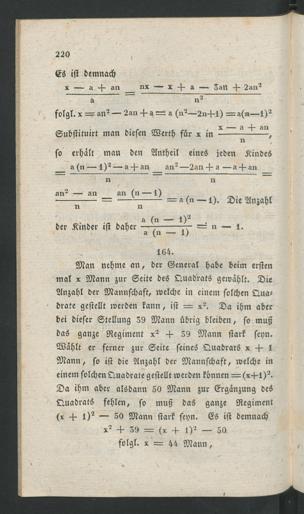 220
Es ist demnach
x — a + an / a = nx — x + a — 3an + 2an² / n²
folgl. x = an² — 2an + a = a (n²—2n+1) = a(n—1)²
Substituirt man diesen Werth für x in x — a + an / n,
so erhält man den Antheil eines jeden Kindes
= a (n—1)² — a + an / n = an² — 2an + a — a + an / n =
an² — an / n = an (n—1) / n = a (n—1). Die Anzahl
der Kinder ist daher a (n — 1)² / a (n — 1) = n — 1.
164.
Man nehme an, der General habe beim ersten
mal x Mann zur Seite des Quadrats gewählt. Die
Anzahl der Mannschaft, welche in einem solchen Qua-
drate gestellt werden kann, ist = x². Da ihm aber
bei dieser Stellung 39 Mann übrig bleiben, so muß
das ganze Regiment x² + 39 Mann stark seyn.
Wählt er ferner zur Seite seines Quadrats x + 1
Mann, so ist die Anzahl der Mannschaft, welche in
einem solchen Quadrate gestellt werden können = (x+1)².
Da ihm aber alsdann 50 Mann zur Ergänzung des
Quadrats fehlen, so muß das ganze Regiment
(x + 1)² — 50 Mann stark seyn. Es ist demnach
x² + 39 = (x + 1)² — 50
folgl. x = 44 Mann,